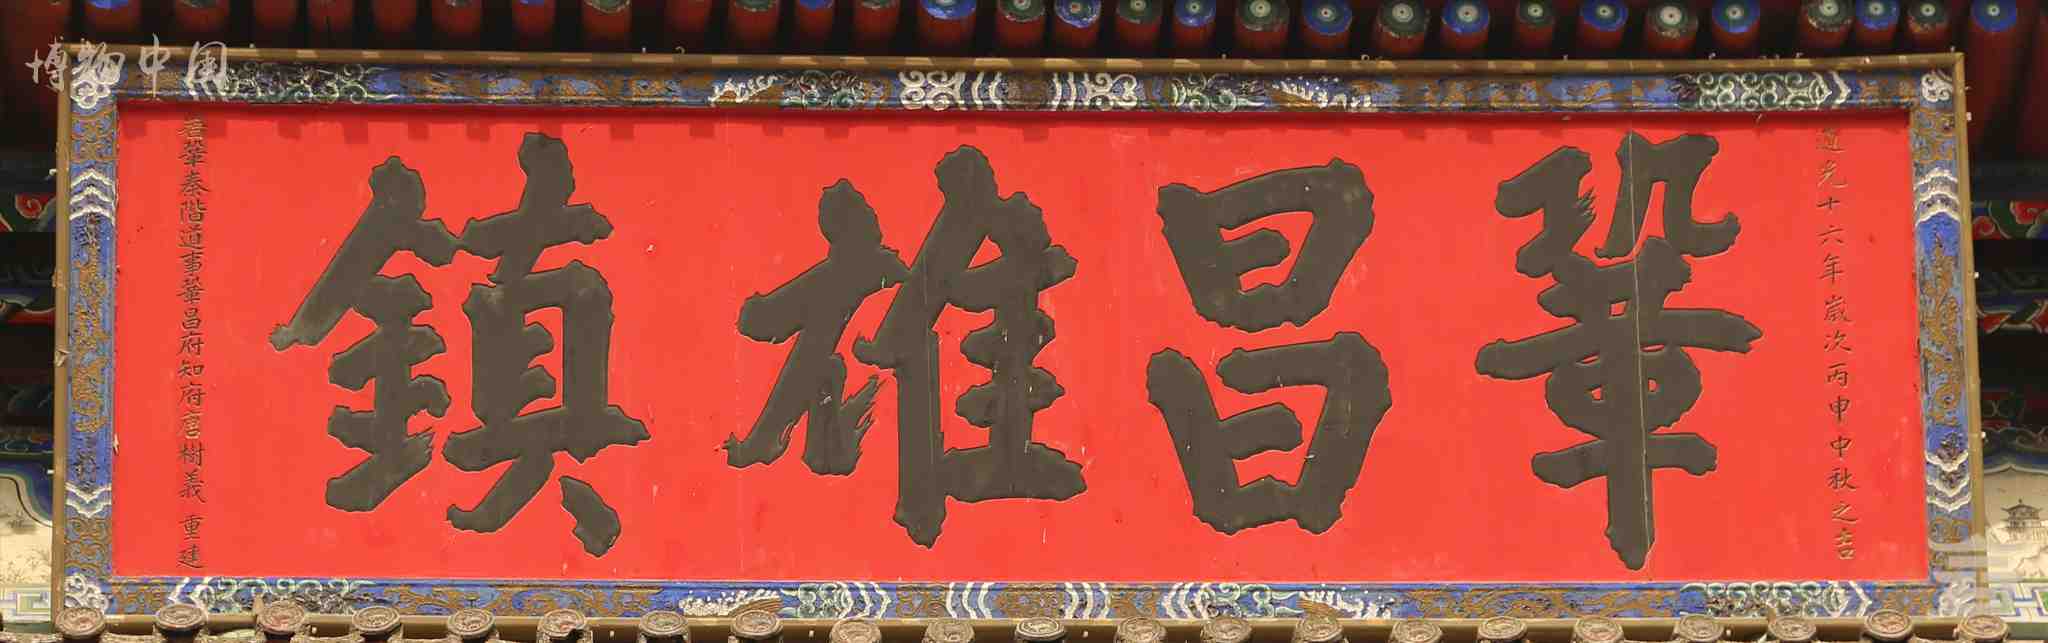 博物中国
道光十六年歲次丙申中秋之吉
鞏昌雄鎮
署鞏秦階道事鞏昌府知府唐樹義 重建